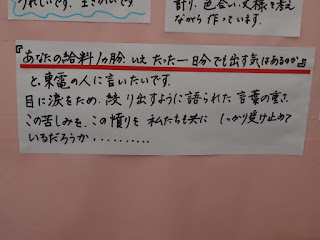 うれしいです。生きがいです。
計り、色合い・文様を考え
ながら 作っています。
『あなたの給料1カ月分、いえ たった一日分でも出す気はあるのか』
と、東電の人に言いたいです。
目に涙をため、絞り出すように語られた 言葉の重さ。
この苦しみを、この憤りを 私たちも共に しっかり受け止めて
いるだろうか・・・・・・・・・・